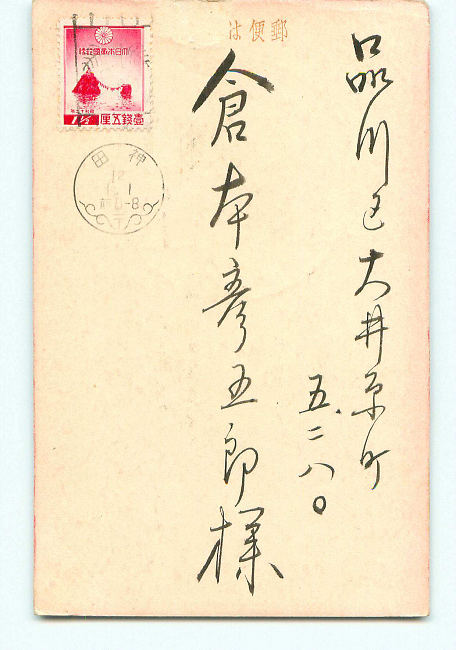 郵便は
品川区大井原町
五二八〇
倉本彦五郎様
大日本帝國郵便
1½ 壹錢五厘
神田
12
1.1
0-8